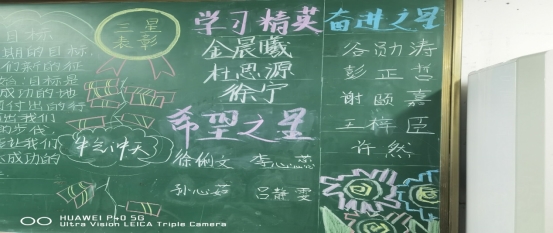 目标
期的目标
们新的征
目标是
成功的地
付出的行
出我们
的步伐
让我们
成功的
三星
表彰
牛气冲天
学习精英
金晨曦
杜思源
徐宁
希望之星
徐俐文 李心蕊
孙心茹 吕静雯
奋进之星
谷勋涛
彭正哲
谢颐嘉
王梓臣
许然
HUAWEI P40 5G
Ultra Vision LEICA Triple Camera